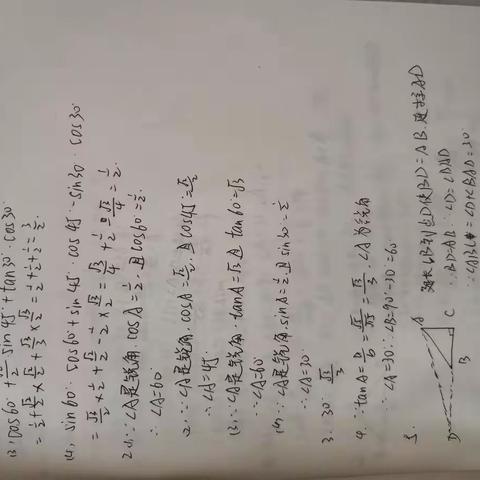 (3), cos60°+√2/2 sin45°+tan30°·cos30°
=1/2+√2/2×√2/2+√3/3×√3/2=1/2+1/2+1/2=3/2.
(4), sin60°·cos60°+sin45°·cos45°-sin30°·cos30°
=√3/2×1/2+√2/2×√2/2-1/2×√3/2=√3/4+1/2-√3/4=1/2.
2(1)∵∠A是锐角,cosA=1/2,且cos60°=1/2.
∴∠A=60°
(2),∵∠A是锐角.cosA=√2/2,且cos45°=√2/2
∴∠A=45°
(3),∵∠A是锐角.tanA=√3且tan60°=√3
∴∠A=60°
(4),∵∠A是锐角,sinA=1/2且sin30°=1/2
∴∠A=30°
3. 30° √3/3
∴∠A=30°∴∠B=90°-30°=60°
5.
延长CB到点D使BD=AB.连接AD
∵BD=AB ∴∠D=∠DAB
A
D
B
C